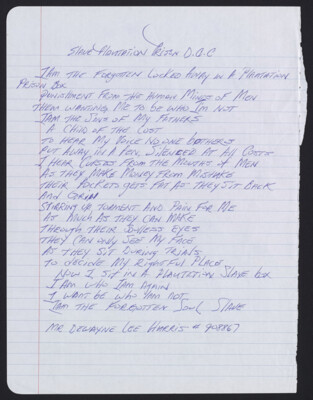 Slave Plantation Prison D.O.C
I Am the Forgotten Locked Away in A Plantation
Prison Box
Punishment From the Minds of Men
Them wanting Me to be who I'm not
I Am the Sons of My Fathers
A Child of the Cost
To Hear My Voice No one bothers
Put Away in A Pen Silenced At All Costs
I Hear Curses From the Mouths of Men
As they Make Money From Mistake
their Pockets gets Fat As they Sit Back
And Grin
Stirring up torment And Pain For Me
As Much As they Can Make
Through their Eyes
they Can only See My Face
As they Sit During Trials
To decide My Rightful Place
Now I Sit in A Plantation Slave Box
I Am who I Am
I want be who I Am not
I Am the Forgotten Soul Slave
Mr Dewayne Lee Harris # 908867